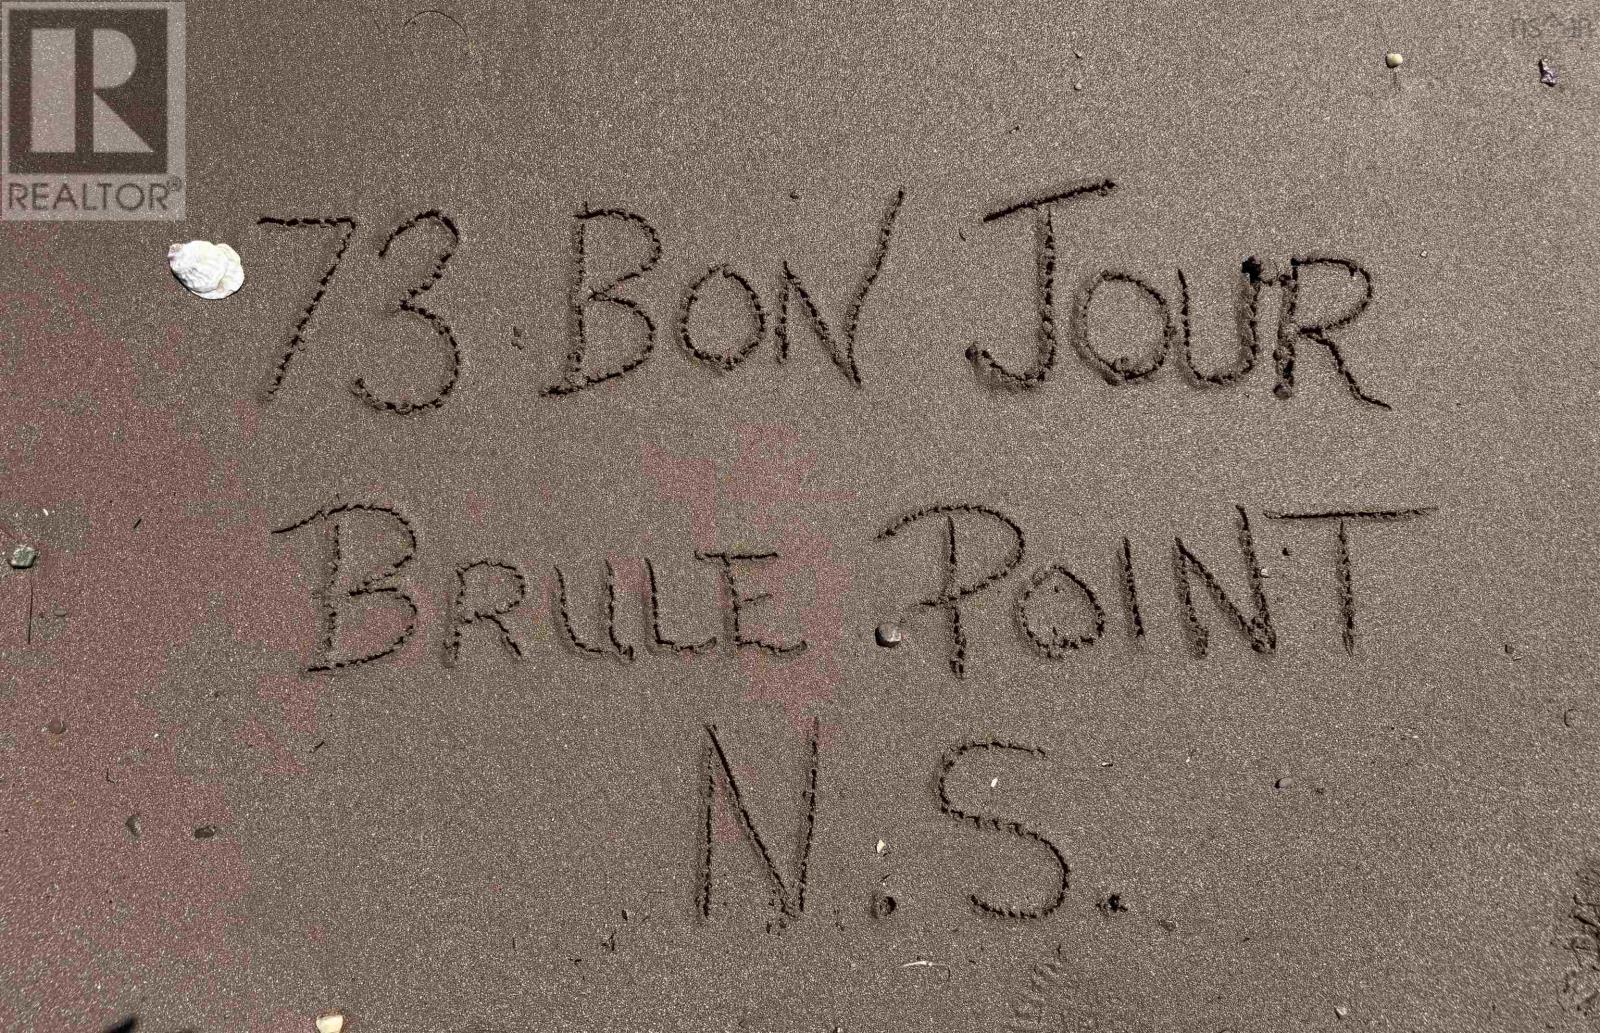 REALTOR®
73 BON JOUR
BRULE POINT
N.S.